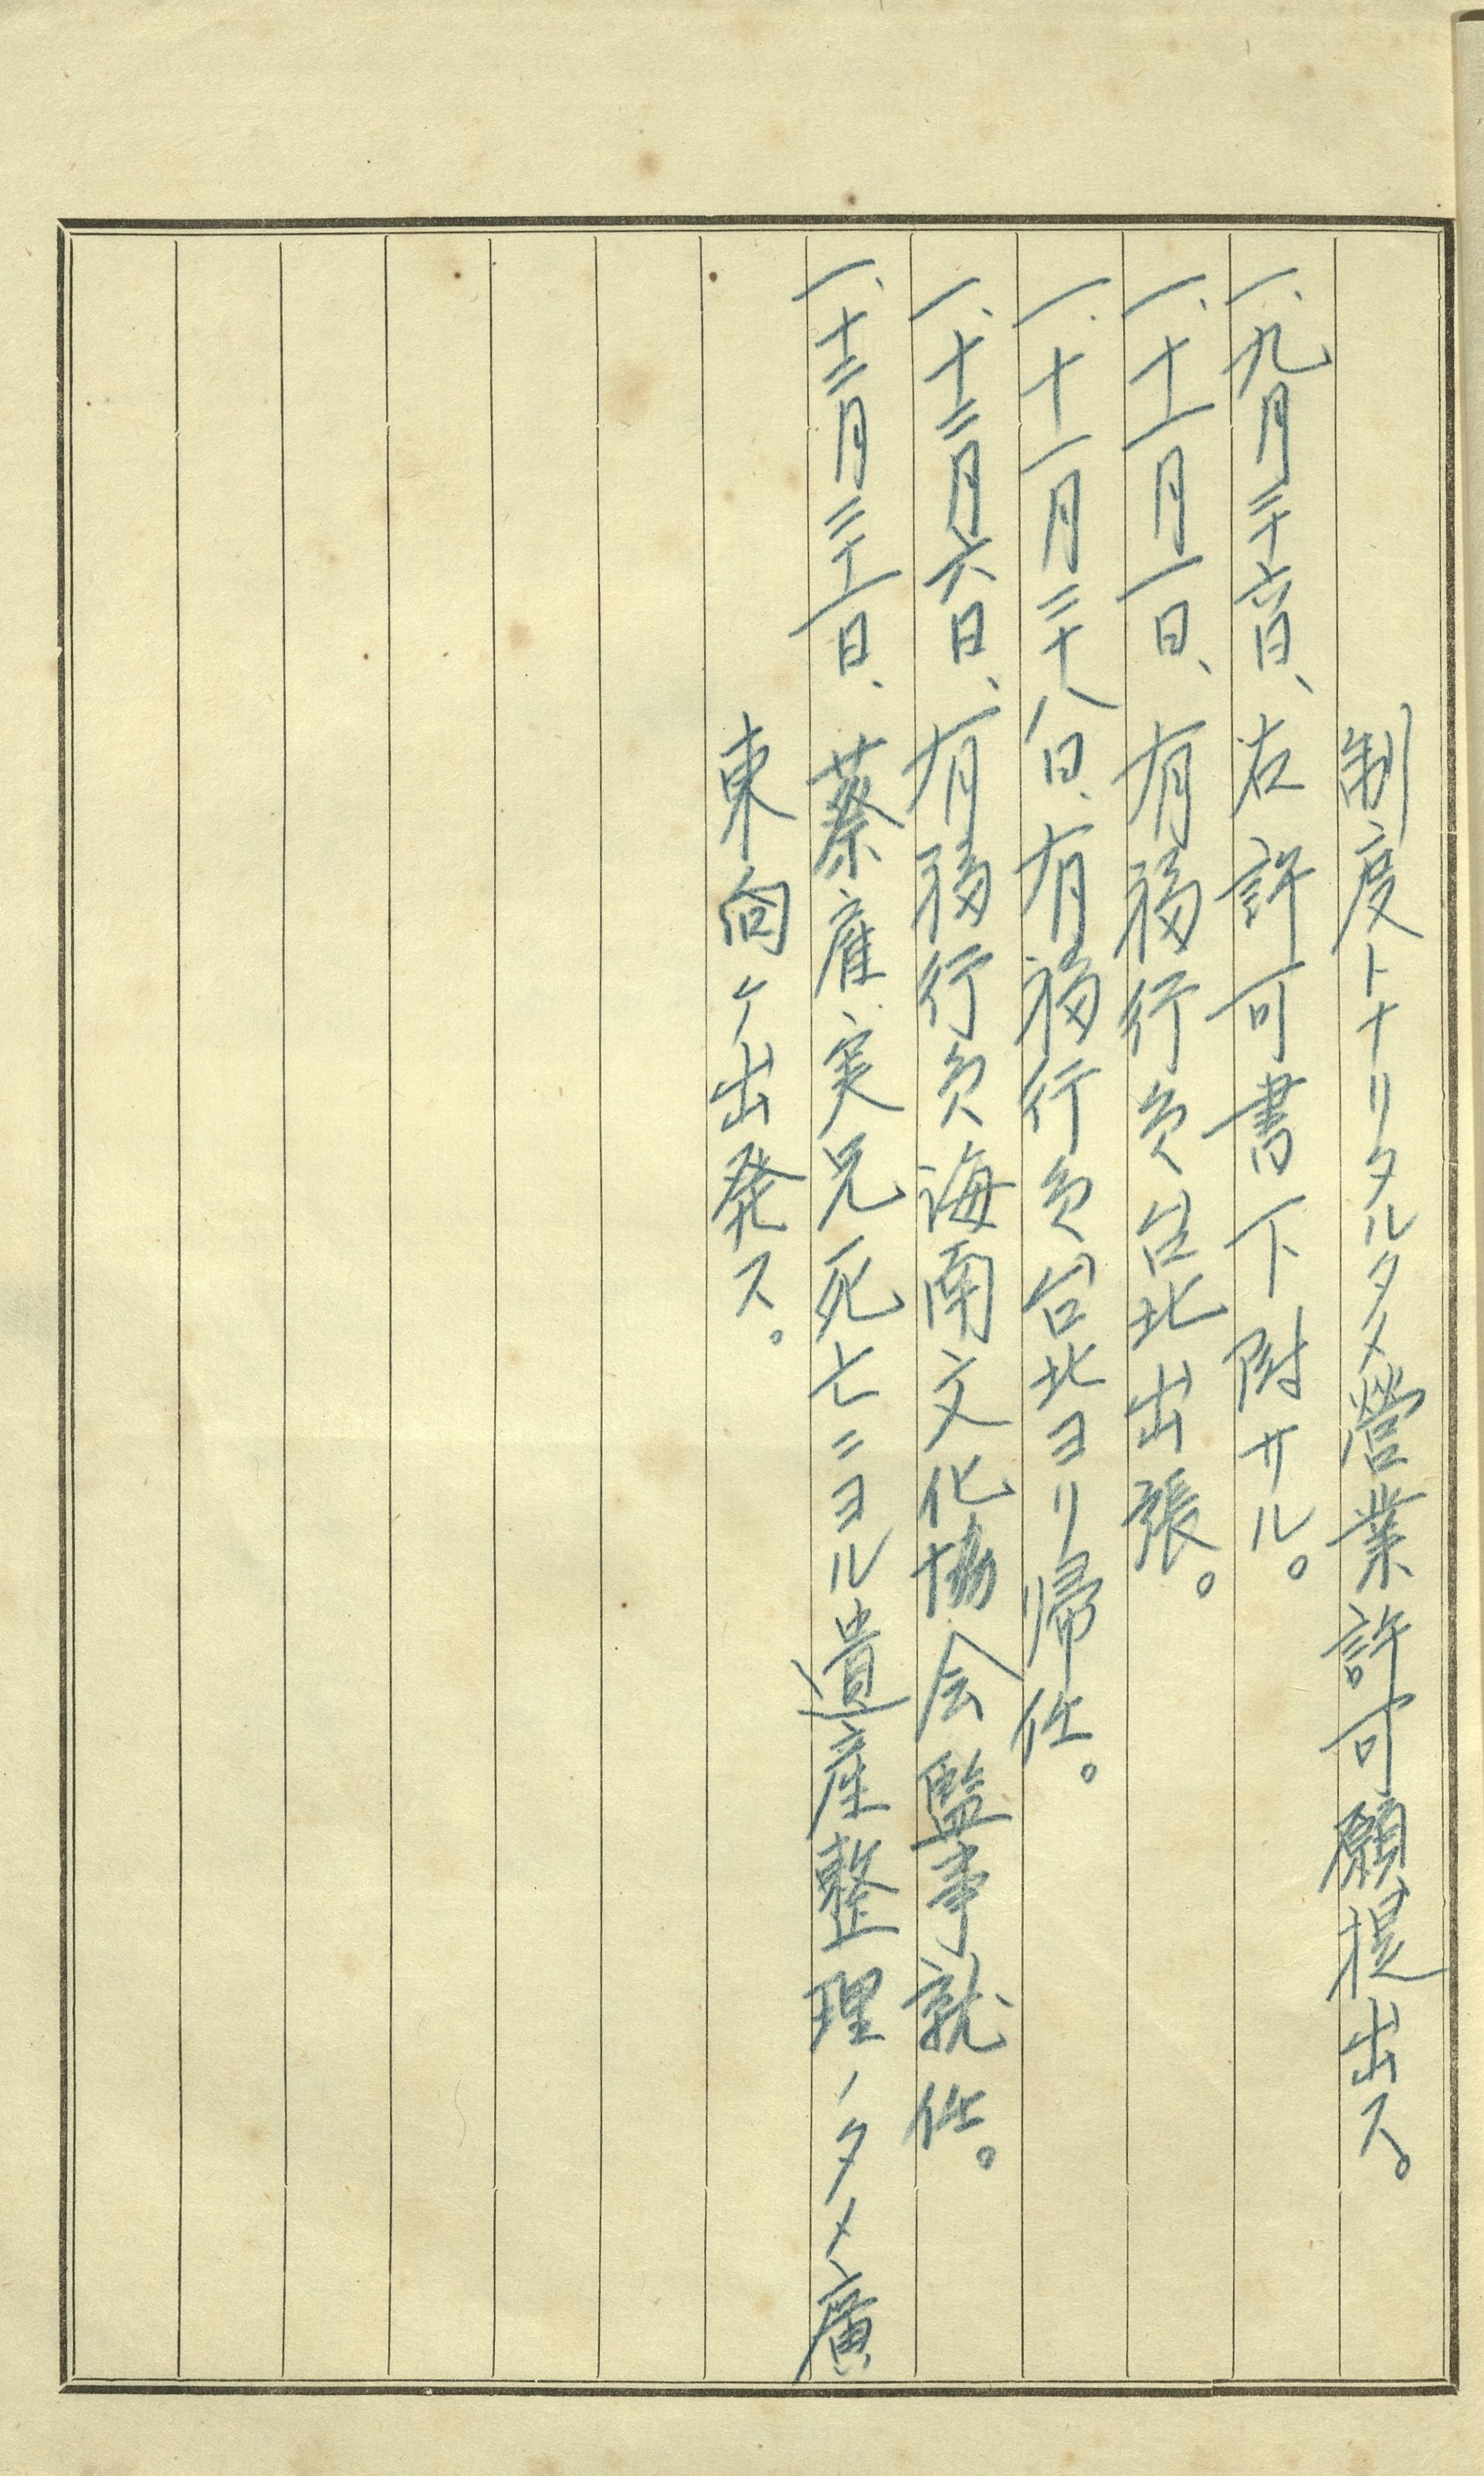 制度トナリタルタメ營業許可願提出ス。
一、九月二十六日、右許可書下附サル。
一、十一月一日、有福行員台北出張。
一、十一月二十八日、有福行員台北ヨリ帰任。
一、十二月六日、有福行員海南文化協会監事就任。
一、十二月三十一日、蔡雇実兄死亡ニヨル遺産整理ノタメ廣
東向ケ出発ス。